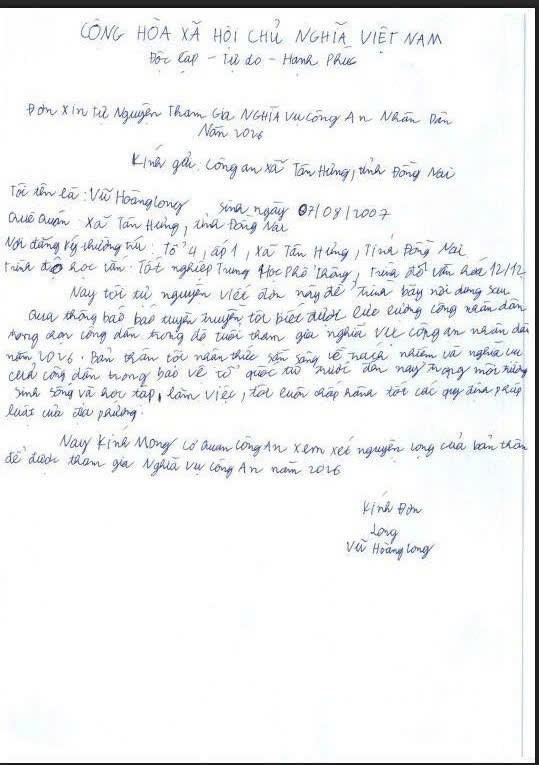 CÔNG HÒA XÃ HỘI CHỦ NGHĨA VIỆT NAM
Độc lập - Tự do - Hạnh Phúc
Đơn Xin Tự Nguyện Tham Gia Nghĩa Vụ Công An Nhân Dân
Năm 2026
Kính gửi: Công an xã Tân Hưng, tỉnh Đồng Nai
Tôi tên là: Vũ Hoàng Long Sinh ngày 07/08/2007
Quê quán: Xã Tân Hưng, tỉnh Đồng Nai
Nơi đăng ký thường trú: Tổ 4, ấp 1, Xã Tân Hưng, Tỉnh Đồng Nai
Trình độ học vấn: Tốt nghiệp Trung Học Phổ Thông, Trình độ văn hóa 12/12
Nay tôi tự nguyện viết đơn này để trình bày nội dung sau
Qua thông báo tuyên truyền, tôi biết được lực lượng công nhân dân
công dân trong độ tuổi tham gia nghĩa vụ công an nhân dân
năm 2026. Bản thân tôi nhận thức sẵn sàng về trách nhiệm và nghĩa vụ
của công dân trong bảo vệ tổ quốc từ trước đến nay trong môi trường
sinh sống và học tập, làm việc, tôi luôn chấp hành tốt các quy định pháp
luật của địa phương.
Nay Kính Mong cơ quan công An xem xét nguyện vọng của bản thân
để được tham gia Nghĩa vụ công An năm 2026
Kính Đơn
Long
Vũ Hoàng Long